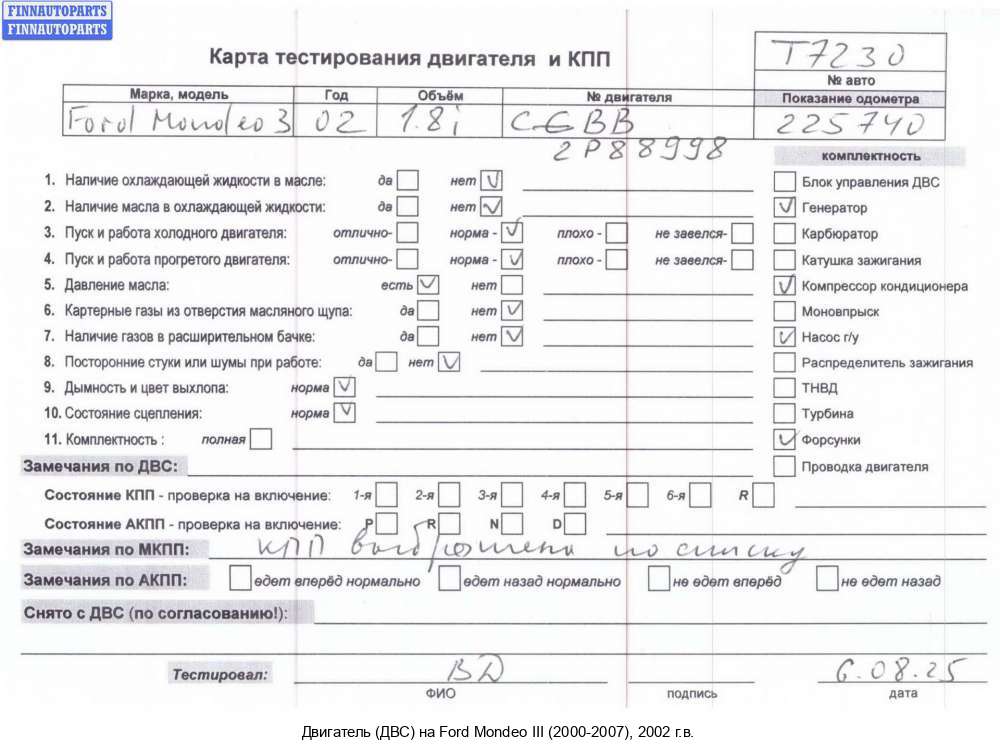 FINNAUTOPARTS
FINNAUTOPARTS
Карта тестирования двигателя и КПП
T7230
№ авто
Марка, модель Год Объём № двигателя Показание одометра
Ford Mondeo 3 02 1.8i CGBB 225740
2P88998
комплектность
1. Наличие охлаждающей жидкости в масле: да нет Блок управления ДВС
2. Наличие масла в охлаждающей жидкости: да нет Генератор
3. Пуск и работа холодного двигателя: отлично- норма - плохо - не завелся- Карбюратор
4. Пуск и работа прогретого двигателя: отлично- норма - плохо - не завелся- Катушка зажигания
5. Давление масла: есть нет Компрессор кондиционера
6. Картерные газы из отверстия масляного щупа: да нет Моновпрыск
7. Наличие газов в расширительном бачке: да нет Насос г/у
8. Посторонние стуки или шумы при работе: да нет Распределитель зажигания
9. Дымность и цвет выхлопа: норма ТНВД
10. Состояние сцепления: норма Турбина
11. Комплектность : полная Форсунки
Замечания по ДВС: Проводка двигателя
Состояние КПП - проверка на включение: 1-я 2-я 3-я 4-я 5-я 6-я R
Состояние АКПП - проверка на включение: P R N D
Замечания по МКПП: КПП выброшена по списку
Замечания по АКПП: едет вперёд нормально едет назад нормально не едет вперёд не едет назад
Снято с ДВС (по согласованию!):
Тестировал: ВД 6.08.25
ФИО подпись дата
Двигатель (ДВС) на Ford Mondeo III (2000-2007), 2002 г.в.